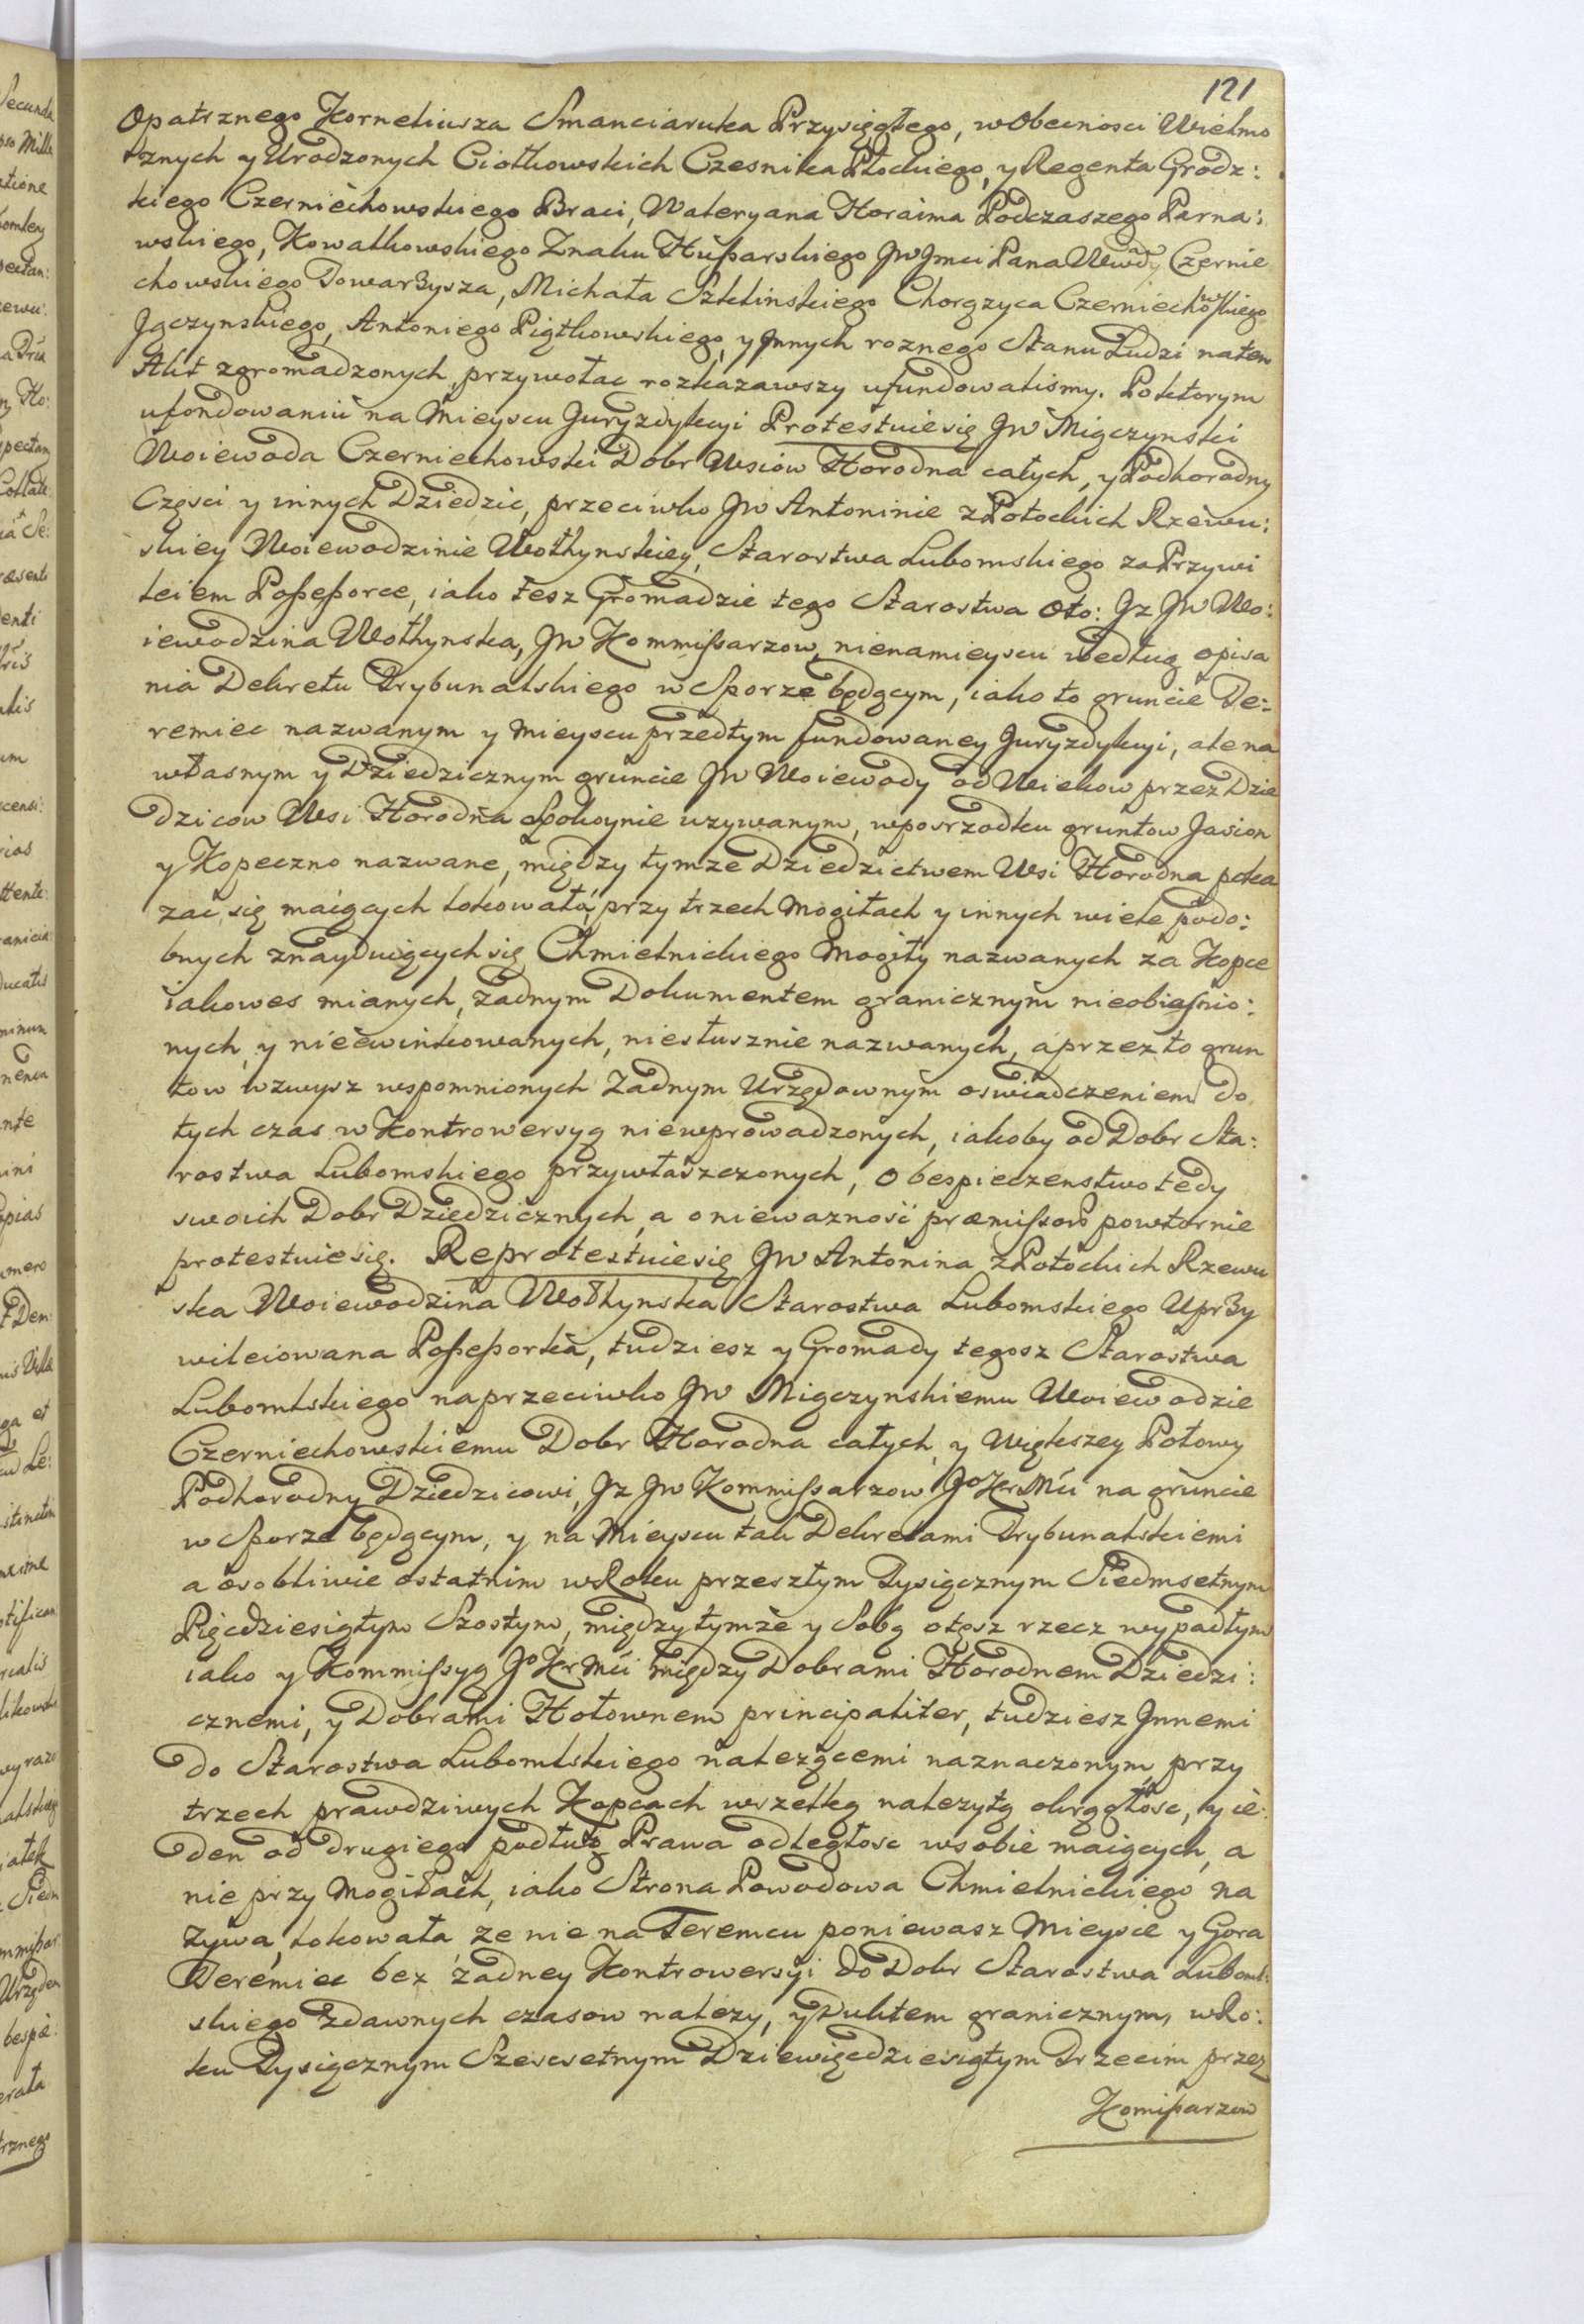 121
Opatrznego Korneliusza Smanciaruka Przysięgłego, w Obecnosci Wielmo
żnych y Urodzonych Ciołkowskich Czesnika Płockiego, y Regenta Grodz:
kiego Czerniechowskiego Braci, Waleryana Horaima Podczaszego Parna:
wskiego, Kowalkowskiego Znaku Hußarskiego JwJmci Pana Wwdy Czernie
chowskiego Towarzysza, Michała Szklinskiego Chorązyca Czerniechowskiego
Jączynskiego, Antoniego Piątkowskiego, y Jnnych roznego Stanu Ludzi naten
Akt zgromadzonych, przywołac rozkazawszy ufundowalismy. Poktorym
ufondowaniu na Mieyscu Juryzdykcyi Protestuie się Jw Miączynski
Woiewoda Czerniechowski Dobr Wsiow Horodna całych, y Podhorodny
Częsci y innych Dziedzic, przeciwko Jw Antoninie z Potockich Rzewu:
skiey Woiewodzinie Wołhynskiey, Starostwa Lubomskiego za Przywi
leiem Poßeßorce, iako tesz Gromadzie tego Starostwa oto: Jz Jw Wo:
iewodzina Wołhynska, Jw Kommißarzow, nienamieyscu według opisa
nia Dekretu Trybunalskiego w Sporze będącym, iako to gruncie Te:
remiec nazwanym y Mieyscu przedtym fundowaney Juryzdykcyi, ale na
własnym y Dziedzicznym gruncie Jw Woiewody od Wiekow przez Dzie
dzicow Wsi Horodna Spokoynie uzywanym, wposrzodku gruntow Jasion
y Kopeczno nazwane, między tymze Dziedzictwem Wsi Horodna poka
zac się maiących lokowała, przy trzech Mogiłach y innych wiele podo:
bnych znayduiących się Chmielnickiego Mogiły nazwanych za Kopce
iakowes mianych, żadnym Dokumentem granicznym nieobiasnio:
nych, y nieewinkowanych, niesłusznie nazwanych, a przez to grun
tow wzwysz wspomnionych Zadnym Urzędownym oswiadczeniem do
tych czas w Kontrowersyą niewprowadzonych, iakoby od Dobr Sta:
rostwa Lubomskiego przywłaszczonych, o bespieczenstwo tedy
swoich Dobr Dziedzicznych, a o niewaznosć præmißow powtornie
protestuie się. Reprotestuie się Jw Antonina z Potockich Rzewu
ska Woiewodzina Wołhynska Starostwa Lubomskiego Uprzy
wileiowana Poßeßorka, tudziesz y Gromady tegosz Starostwa
Lubomlskiego naprzeciwko Jw Miączynskiemu Woiewodzie
Czerniechowskiemu Dobr Horodna całych, y Większey Połowy
Podhorodny Dziedzicowi, Jz Jw Kommißarzow JoKrMci na gruncie
w Sporze będącym, y na Mieyscu tak Dekretami Trybunalskiemi
a osobliwie ostatnim w Roku przeszłym Tysiącznym Siedmsetnym
Pięcdziesiątym Szostym, między tymże y Sobą otęsz rzecz wypadłym
iako y Kommißyą JoKrMci między Dobrami Horodnem Dziedzi:
cznemi, y Dobrami Hołownem principaliter, tudziesz Jnnemi
do Starostwa Lubomlskiego nalezącemi naznaczonym, przy
trzech prawdziwych Kopcach wszelką nalezytą okrągłosc, y ie:
den od drugiego podług Prawa odległosc wsobie maiących, a
nie przy Mogiłach, iako Strona Powodowa Chmielnickiego na
zywa, lokowała, ze nie na Teremcu poniewasz Mieysce y Gora
Teremiec bez żadney Kontrowersyi do Dobr Starostwa Luboml:
skiego zdawnych czasow nalezy, y Duktem granicznym, w Ro:
ku Tysiącznym Szescsetnym Dziewięcdziesiątym Trzecim przez
Komißarzow